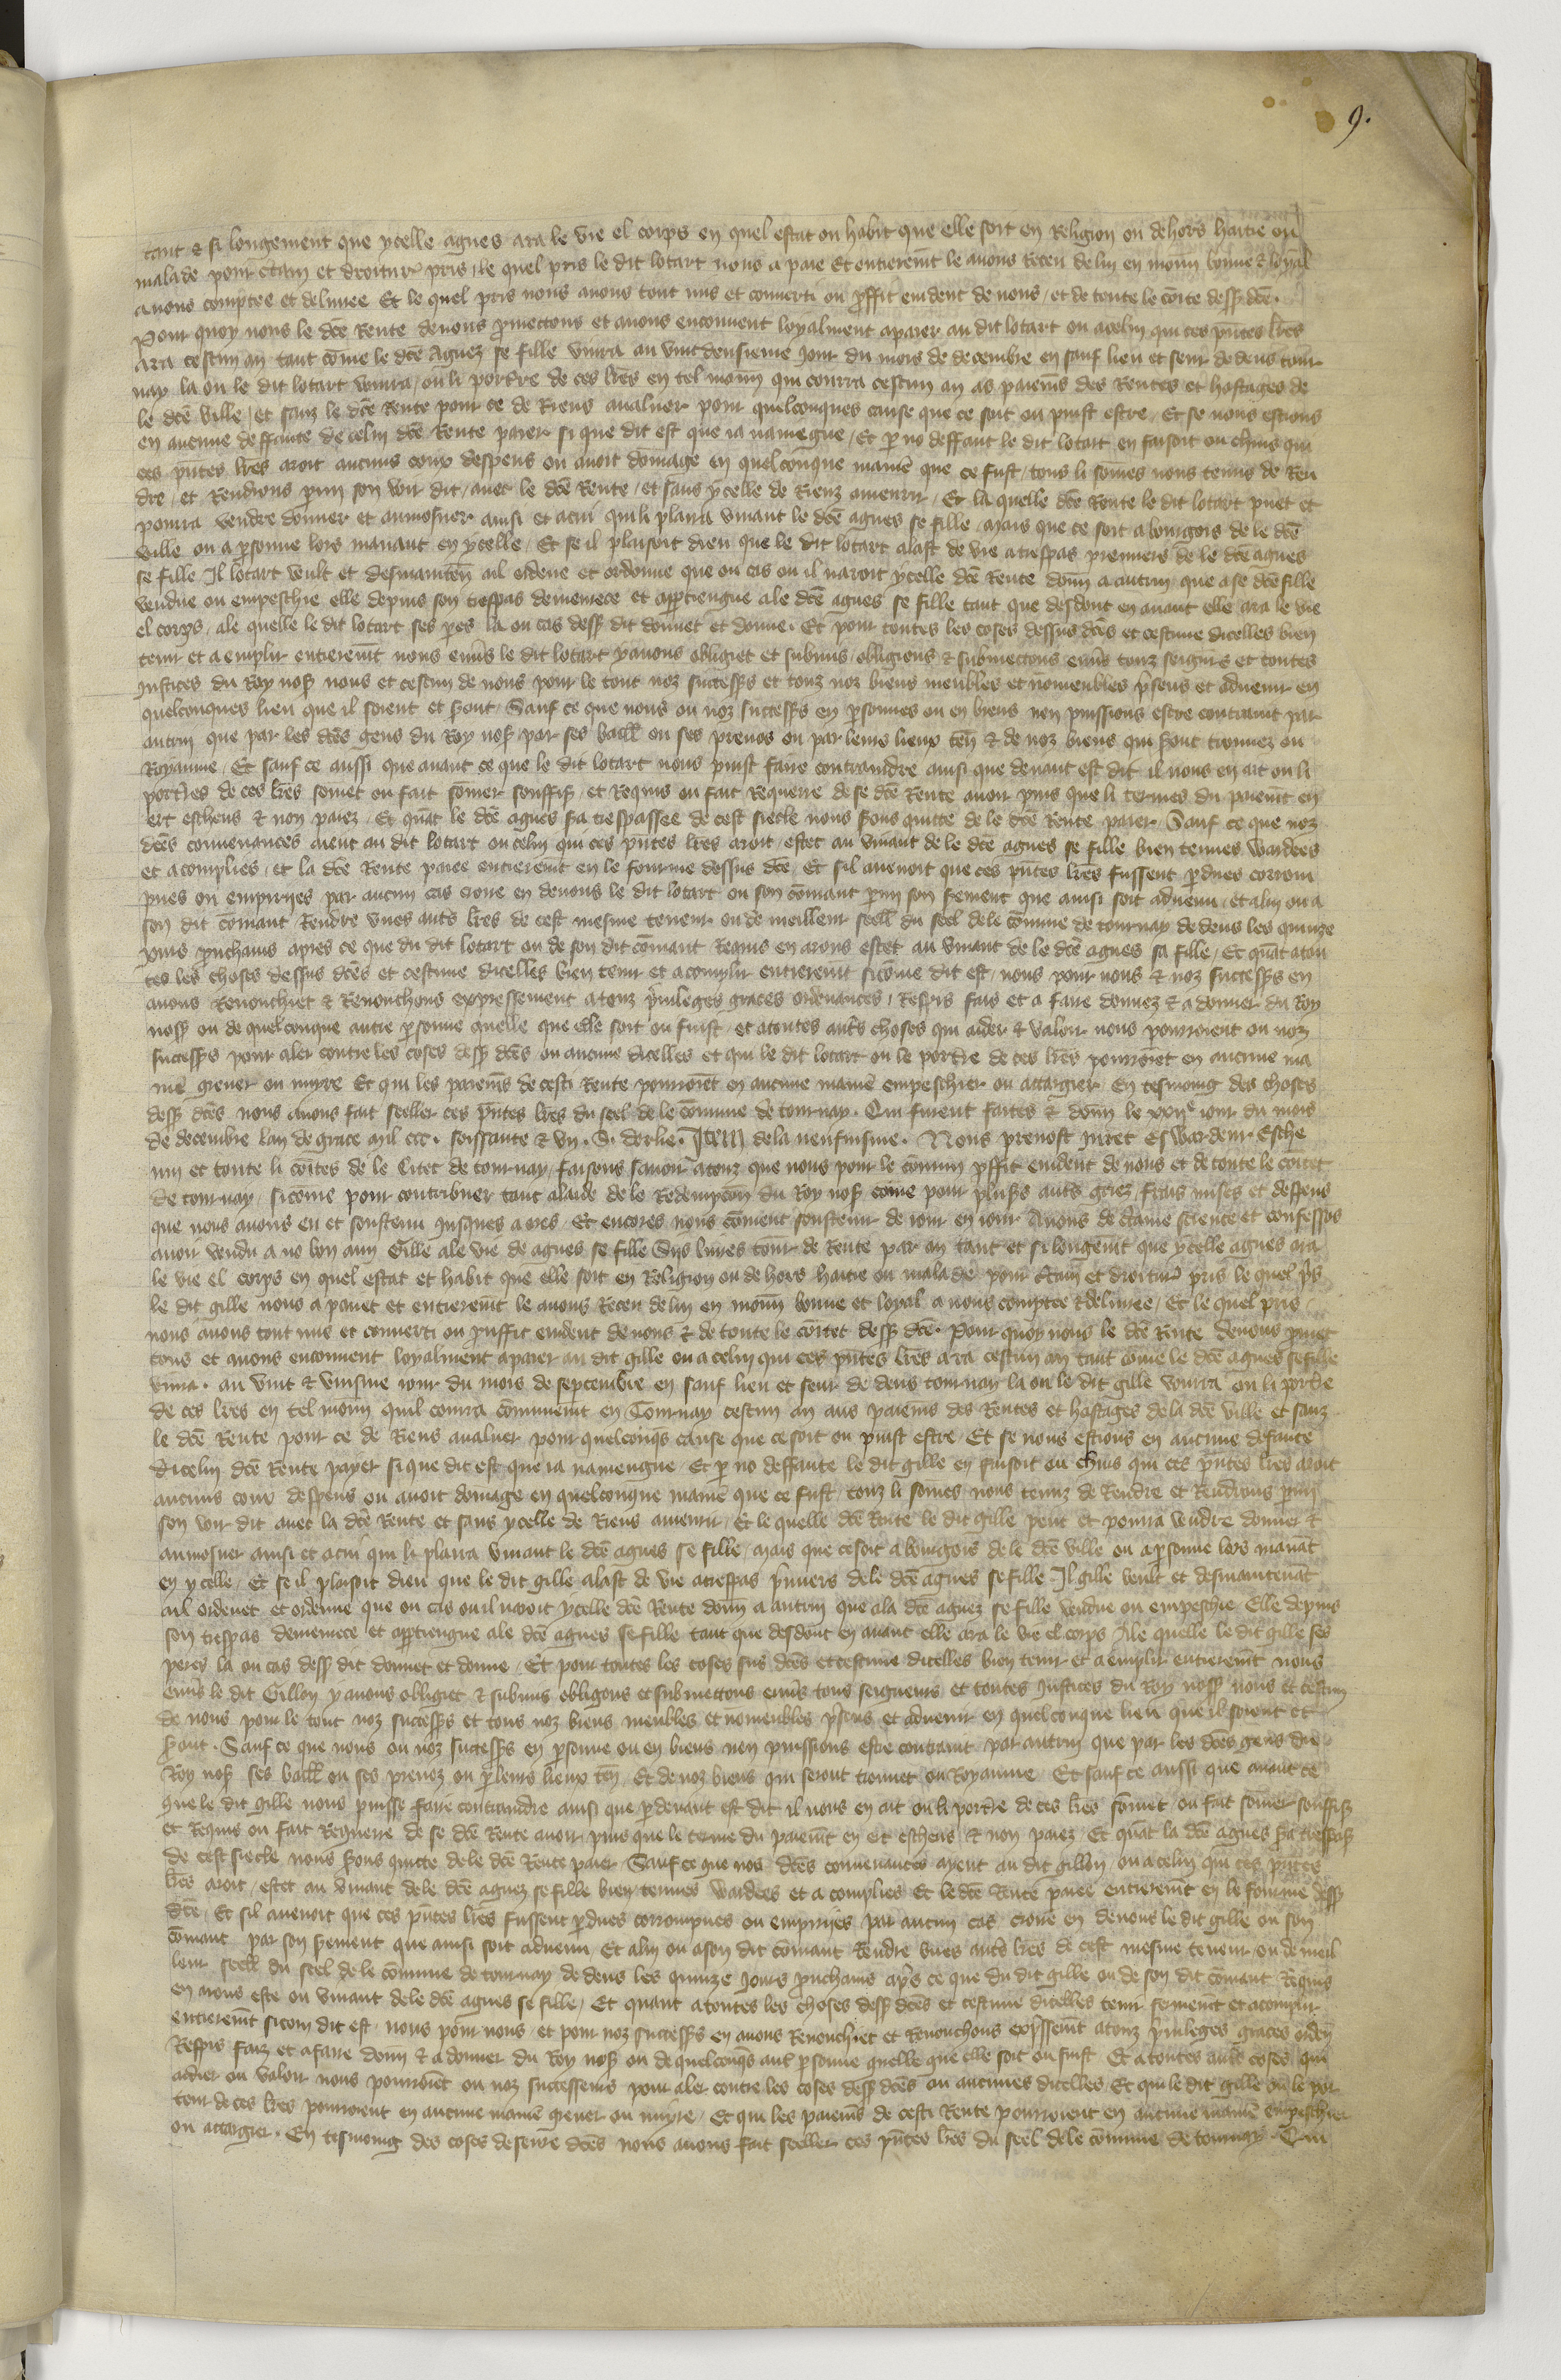 9.
tant & si longement que ycelle agnes ara le vie el corps en quel estat ou habit que elle soit en Religion ou dehors haitie ou
malade pour ctain et droiturͬ pris, le quel pris le dit lotart nous a paie Et entierem̄t le avons Receu de lui en mōn bonne & loyal
a nous comptee et delivree Et le quel pris nous avons tout mis et converti ou proffit evident de nous, et de toute le cōite dess dcē.
Pour quoy nous le dcē Rente devons pmectons et avons enconvent loyalment a paier au dit lotart ou a celui qui ces pn̄tes lr̄es
ara cescun an tant cōme le dcē Agnez se fille vivra au vint deusieme Jour du mois de decembre en sauf lieu et seur dedens tour
nay la ou le dit lotart vourra, ou li porter̄e de ces lr̄es en tel mōn qui courra cescun an as paiem̄s des Rentes et hostages de
le dcē ville, et sanz le dcē Rente pour ce de Riens avaluer pour quelconques cause que ce soit ou puist estre, Et se nous estions
en aucune deffaute de celui dcē Rente paier si que dit est que ia naviegne, Et p no deffaut le dit lotart en faisoit ou chius qui
ces pn̄tes lr̄es aroit aucuns coux despens ou avoit dōmage en quelconque maniē que ce fust, tous li sōmes nous tenus de Ren
dre, et Rendrons pmi son voir dit, avec le dcē Rente, et sans ycelle de Rienz amenrir, Et la quelle dcē Rente le dit lotart puet et
pourra vendre donner et aumosner ainsi et acui quil li plaira vivant le dcē agnes se fille, Mais que ce soit a bourgois de le dcē
ville ou a psonne lors manant en ycelle, Et se il plaisoit dieu que le dit lotart alast de vie a trespas premiers de le dcē agnes
se fille Il lotart veult et desmaintēn ail ordene et ordonne que ou cas ou il naroit ycelle dcē Rente dōnn a autrui que a se dcē fille
vendue ou empeschie elle depuis son trespas demeurece et apptiengne a le dcē agnes se fille tant que desdont en avant elle ara le vie
el corps, a le quelle le dit lotart ses peres la ou cas dess dit donnet et donne. Et pour toutes les coses dessus dcēs et cescune dicelles bien
tenir et a emplir entierem̄t nous env̄s le dit lotart y avons obligiet et submis, obligions & submectons env̄s touz seigneurs et toutes
Justices du Roy nos̄ nous et cescun de nous pour le tout noz success̄s et touz noz biens meubles et nōmeubles p̄sens et advenir en
quelconques lieu que il soient et s̄ont, Sauf ce que nous ou noz success̄s en psonnes ou en biens nen puissions estre contraint par
autrui que par les dcēs gens du Roy nos̄ par ses baill̄ ou ses prevos ou par leurs lieux tēn & de noz biens qui s̄ont trouvez ou
Royaume, Et sauf ce aussi que avant ce que le dit lotart nous puist faire contraindre ainsi que devant est dit il nous en ait ou li
porter̄es de ces lr̄es somet ou fait sōmer souffis̄, et Requis ou fait Requerre de se dcē Rente avoir puis que li termes du paiem̄t en
ert escheus & non paiez, Et quāt le dcē agnes s̄a trespassee de cest siecle nous s̄ons quitte de le dcē Rente paier, Sauf ce que noz
dcēs convenances aient au dit lotart ou celui qui ces pn̄tes lr̄es aroit, estet au vivant de le dcē agnes se fille bien tenues wardees
et acomplies, et la dcē Rente paiee entierem̄t en le fourme dessus dcē, Et sil avenoit que ces pn̄tes lr̄es fussent pdues corrom
pues ou empiriies par aucun cas croire en devons le dit lotart ou son cōmant pmi son serement que ainsi soit advenu, et a lui ou a
son dit cōmant Rendre unes autr̄s lr̄es de cest mesme teneur ou de meilleur seell̄ du seel de le cōmune de tournay dedens les quinze
jours prochains apres ce que du dit lotart ou de son dit cōmant Requis en arons estet au vivant de le dcē agnes sa fille, Et quāt a tou
tes les choses dessus dcēs et cescune dicelles bien tenir et acomplir entierem̄t sicōme dit est, nous pour nous & noz success̄s en
avons Renonchiet & Renonchons expressement a touz p̄vileges graces ordenances, Respis fais et a faire donnez & a donner du Roy
noss̄ ou de quelconque autre psonne quelle que elle soit ou fuist, et a toutes autr̄s choses qui aider & valoir nous pourroient ou noz
success̄s pour aler contre les coses dess̄ dcēs ou aucune dicelles et qui le dit lotart ou le porter̄e de ces lr̄es pourroiēt en aucune ma
niē grever ou nuyre Et qui les paiem̄s de cesti Rente pourroiēt en aucune maniē empeschier ou attargier En tesmoing des choses
dess̄ dcēs nous avons fait seeller ces pn̄tes lr̄es du seel de le cōmune de tournay. Qui furent faites & dōnn le xxijᵉ iour du mois
de decembre lan de grace mil ccc. soissante & vn. S. dorke. Item de la neufuisme. Nous prevost juret Eswardeur Esche
vin et toute li cōites de le Citet de tournay, faisons savoir a touz que nous pour le cōmun pffit evident de nous et de toute le cōitet
de tournay, sicōme pour contribuer tant alaide de le Redempcōn du Roy nos̄ cōme pour plus̄s autr̄s griez, fraiz mises et despens
que nous avons eu et soustenu jusques a ores, Et encores nous cōvient soustenir de iour en iour Avons de ctaine science et confessōs
avoir vendu a no bon amy Gille a le vie de agnes se fille Sijs livres tour̄ de Rente par an tant et si longem̄t que ycelle agnes ara
le vie el corps en quel estat et habit que elle soit en Religion ou dehors haitie ou malade pour ctain et droiturͬ pris le quel p̄s
le dit gille nous a paiet et entierem̄t le avons Receu de lui en mōn bonne et loyal a nous comptee & delivree, Et le quel pris
nous avons tout mis et converti ou pruffit evident de nous & de toute le cōitet dess̄ dcē. Pour quoy nous le dcē Rente devons pmet
tons et avons enconvent loyalment a paier au dit gille ou a celui qui ces pn̄tes lr̄es ara cescun an tant cōme le dcē agnes se fille
vivra. au vint & unisme iour du mois de septembre en sauf lieu et seur dedens tournay la ou le dit gille vourra ou li porter̄e
de ces lr̄es en tel mōnn quil courra cōmunem̄t en Tournay cescun an aus paiem̄s des Rentes et hostages de la dcē ville et sanz
le dcē Rente pour ce de Riens avaluer pour quelconq̄s cause que ce soit ou puist estre, Et se nous estions en aucune defaute
dicelui dcē Rente payer si que dit est que ia naviengne, Et p no deffaute le dit gille en faisoit ou chius qui ces pn̄tes lr̄es aroit
aucuns coux despens ou avoit dōmage en quelconque maniē que ce fust, touz li sōmes nous tenuz de Rendre et Rendrons pmi
son voir dit avec la dcē Rente et sans ycelle de Riens amenrir, Et le quelle dcē Rente le dit gille peut et pourra vendre donner &
aumosner ainsi et acui qui li plaira vivant le dcē agnes se fille, Mais que ce soit a bourgois de le dcē ville ou a psonne lors manāt
en ycelle, Et se il plaisoit dieu que le dit gille alast de vie atrespas p̄miers de le dcē agnes se fille Il gille veult et desmaintenāt
ail ordenet et ordenne que ou cas ou il naroit ycelle dcē Rente dōnn a autrui que a la dcē agnez se fille vendue ou empeschie Elle depuis
son trespas demeurece et apptiengne a le dcē agnes se fille tant que desdont en avant elle ara le vie el corps Ale quelle le dit gille ses
peres la ou cas dess̄ dit donnet et donne, Et pour toutes les coses sus dcēs et cescune dicelles bien tenir et a emplir entierem̄t nous
env̄s le dit Gillon y avons obligiet & submis obligons et submettons env̄s tous seigneurs et toutes Justices du Roy noss̄ nous et cescun
de nous pour le tout noz success̄s et tous noz biens meubles et nōmeubles p̄sens et advenir en quelconque lieu que il soient et
s̄ont. Sauf ce que nous ou noz success̄s en psonne ou en biens nen puissions estre contraint par autrui que par les dcēs gens du
Roy nos̄ ses baill̄ ou ses prevoz ou p leurs lieux tēn, Et de noz biens qui seront trouvet ou Royaume Et sauf ce aussi que avant ce
que le dit gille nous puisse faire contraindre ainsi que p devant est dit il nous en ait ou li porter̄e de ces lr̄es sōmet, ou fait sōmer souffis̄
et Requis ou fait Requerre de se dcē Rente avoir puis que le terme du paiem̄t en ert escheus & non paiez, Et quāt la dcē agnes s̄a trespass̄
de cest siecle, nous s̄ons quitte de le dcē Rente paier, Sauf ce que nos dcēs convenances ayent au dit gillon, ou a celui qui ces pn̄tes
lr̄es aroit, estet au vivant de le dcē agnez se fille bien tenues wardees et acomplies Et le dcē Rente paiee entierem̄t en le fourme dess̄
dcē, Et sil avenoit que ces pn̄tes lr̄es fussent pdues corrompues ou empiriies par aucun cas croire en devons le dit gille ou son
cōmant par son s̄ement que ainsi soit advenu, Et a lui ou a son dit cōmant Rendre unes autr̄s lr̄es de cest mesme teneur ou de meil
leur seell̄ du seel de le cōmune de tournay dedens les quinze Jours prochains ap̄s ce que du dit gille ou de son dit cōmant Requis
en arons este ou vivant de le dcē agnes se fille, Et quant a toutes les choses dess̄ dcēs et cescune dicelles tenir fermem̄t et acomplir
entierem̄t sicom dit est, nous pour nous, et pour noz success̄s en avons Renonchiet et Renonchons exp̄ssem̄t a touz p̄vileges graces ordēn
Respis faiz et a faire dōnn & a donner du Roy nos̄ ou de quelconq̄s autr̄ psonne quelle que elle soit ou fuist Et a toutes autr̄s coses qui
aidier ou valoir nous pourroiēt ou noz successeurs pour aler contre les coses dess̄ dcēs ou aucunes dicelles, Et qui le dit gille ou le por
teur de ces lr̄es pourroient en aucune maniē grever ou nuyre, Et qui les paiem̄s de cesti Rente pourroient en aucune maniē empeschier
ou attargier. En tesmoing des coses deseure dcēs nous avons fait seeller ces pn̄tes lr̄es du seel de le cōmune de tournay. Qui